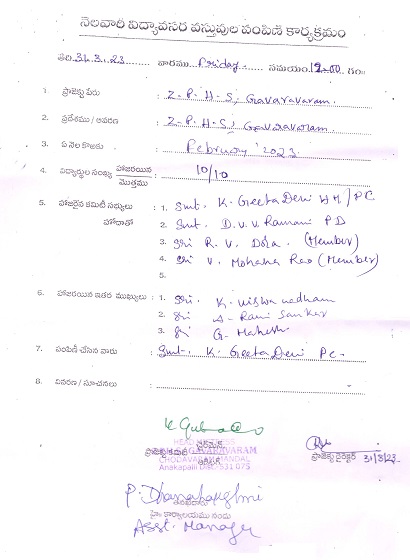 నెలవారీ విద్యావసర వస్తువుల పంపిణీ కార్యక్రమం
తేది 31.3.23 వారము Friday సమయం 12-00 గం॥
1. ప్రాజెక్టు పేరు : Z.P.H.S, Gavaravaram.
2. ప్రదేశము / ఆవరణ : Z.P.H.S, Gavaravaram.
3. ఏ నెల కొఱకు : February '2023
4. విద్యార్థుల సంఖ్య హాజరయిన / మొత్తము : 10/10
5. హాజరైన కమిటీ సభ్యులు : 1. Smt. K. Geeta Devi HM/PC
హోదాతో 2. Smt. D.V.V. Ramani PD
3. Sri R.V. Dora. (Member)
4. Sri V. Mohana Rao (Member)
5.
6. హాజరయిన ఇతర ముఖ్యులు : 1. Sri. K. Viswanadham
2. Sri A. Rami Sankar
3. Sri G. Mahesh
7. పంపిణీ చేసిన వారు : Smt. K. Geeta Devi PC
8. వివరణ / సూచనలు :
ప్రాజెక్టు కమిటీ ఛైర్మెన్
HEAD MISTRESS
GAVARAVARAM
CHODAVARAM MANDAL
Anakapalli Dist. 531 075
ప్రాజెక్టు డైరెక్టర్ 31/3/23
P. Dhanalakshmi
హై కార్యాలయము నందు
Asst. Manager